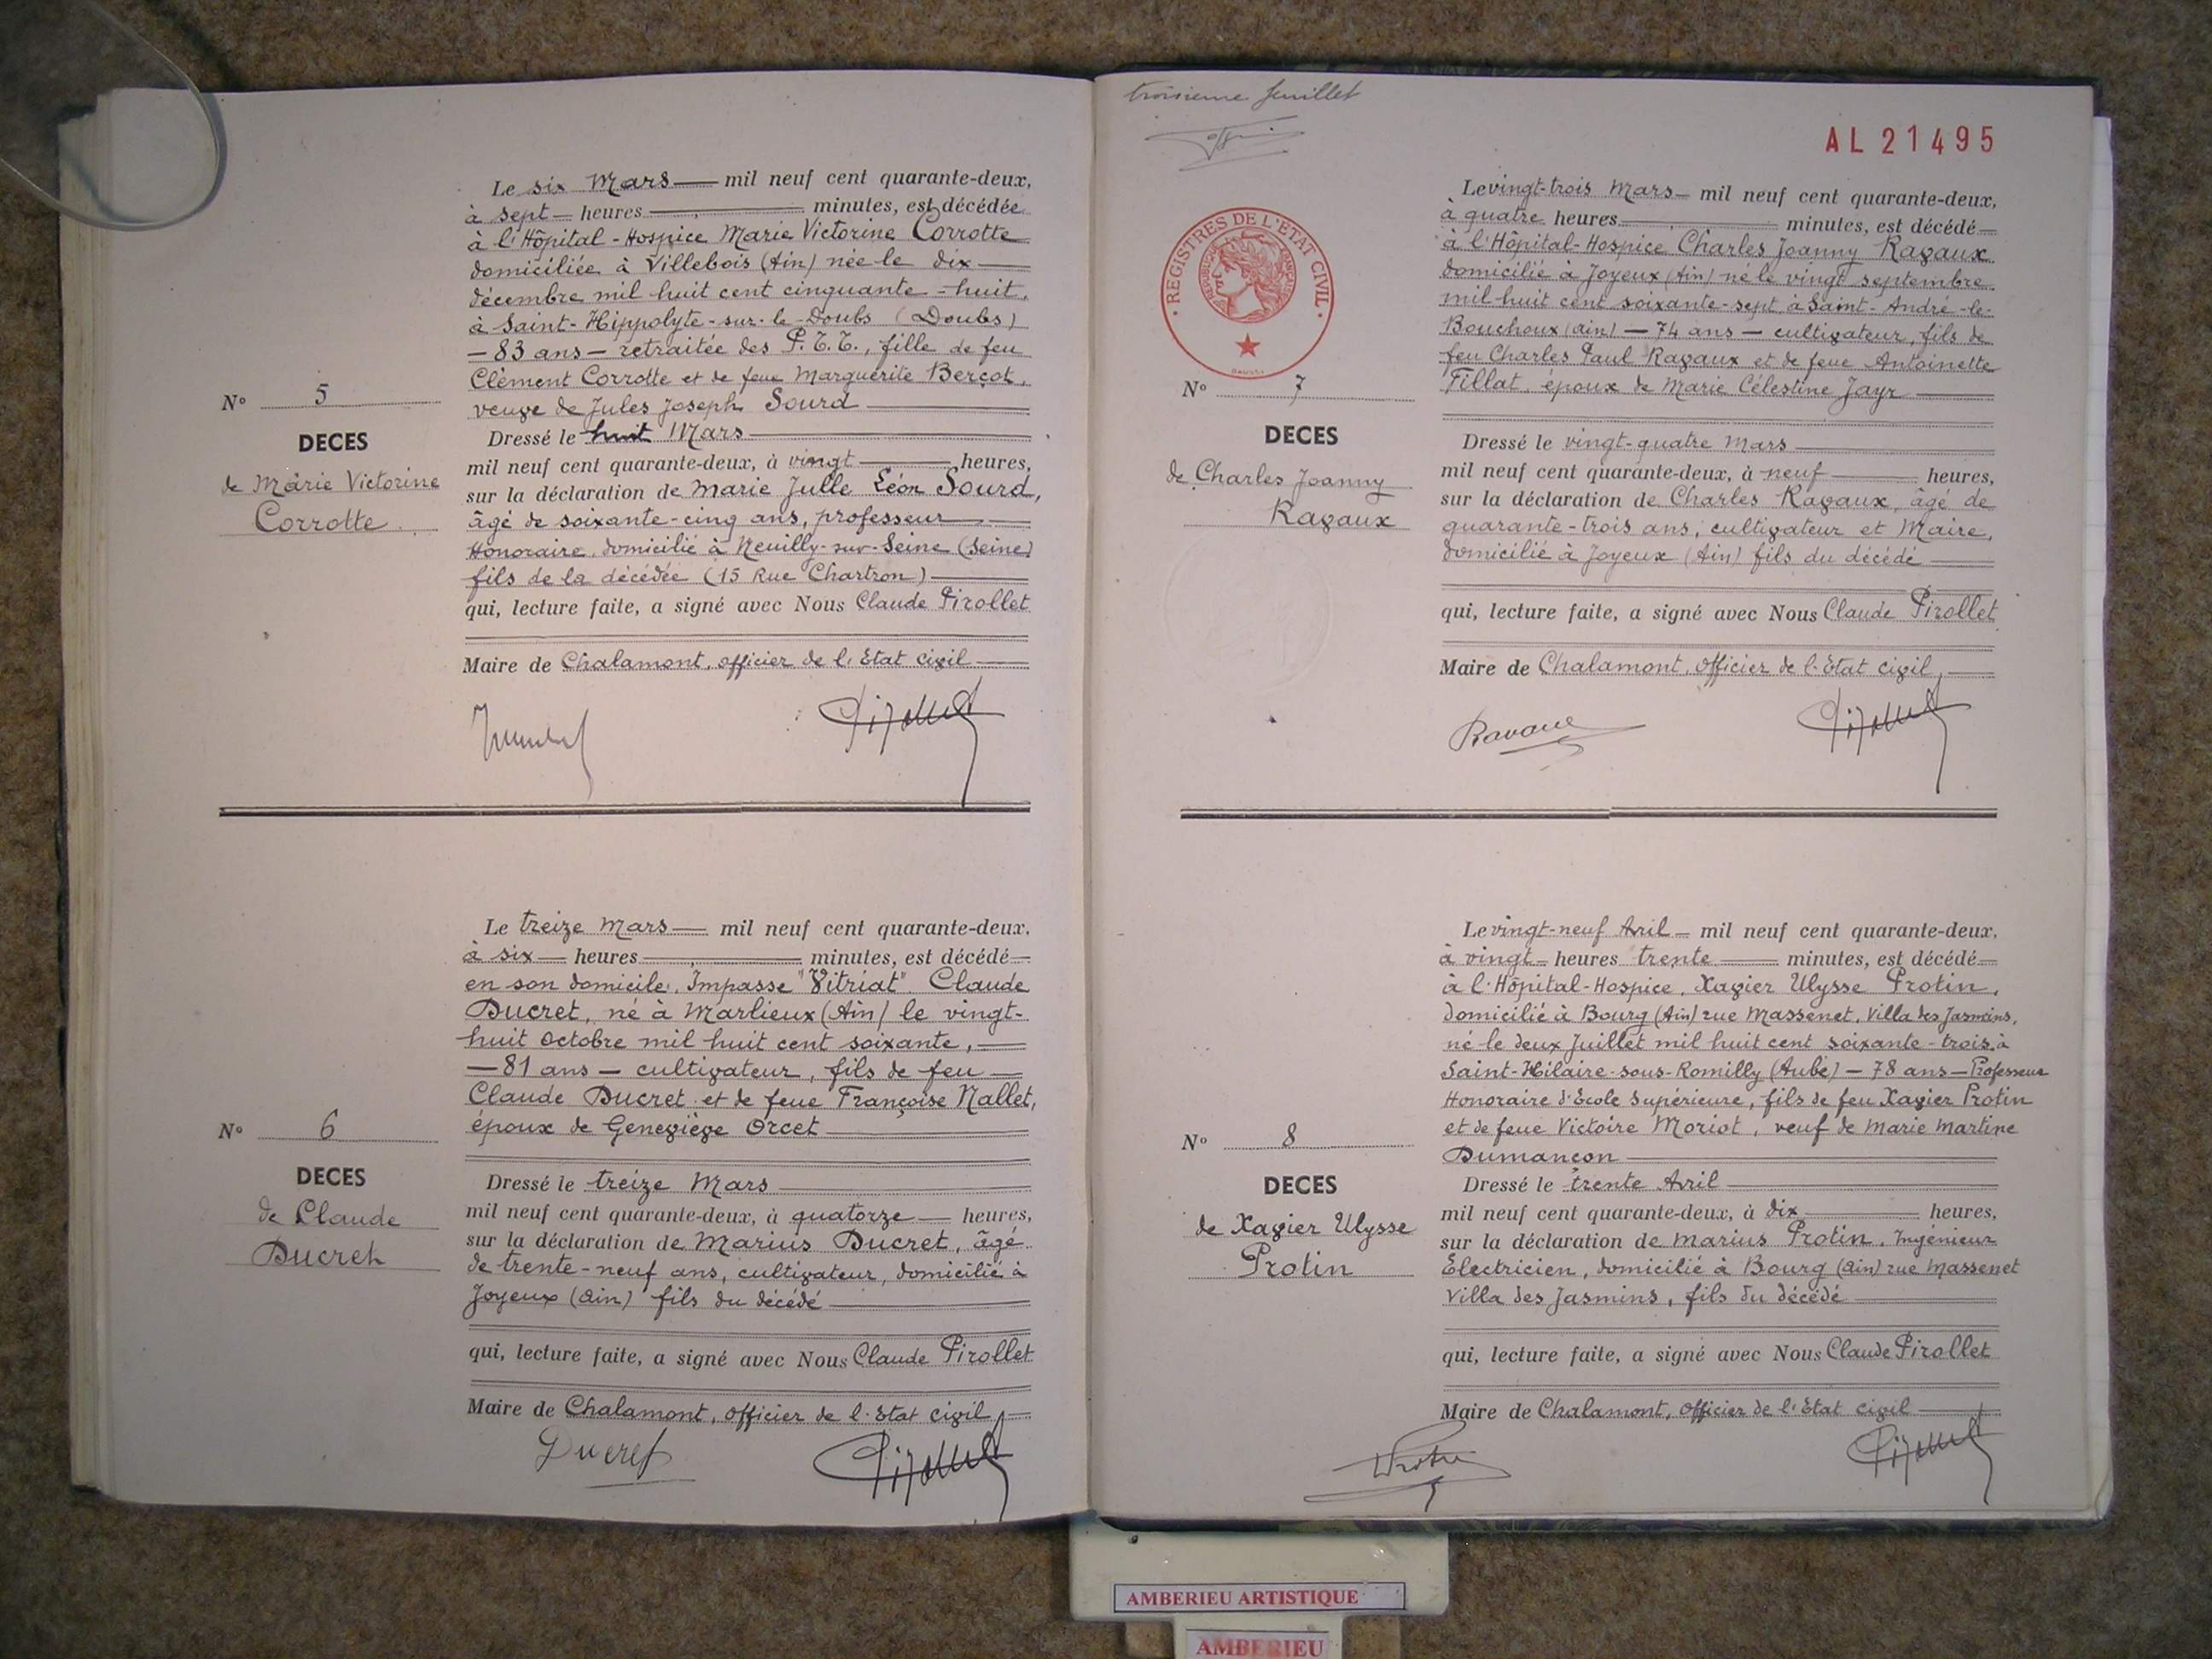 Le six Mars mil neuf cent quarante-deux,
à sept heures minutes, est décédée
à l'Hôpital-Hospice Marie Victorine Corrotte
domiciliée à Villebois (Ain) née le dix
décembre mil huit cent cinquante-huit,
à Saint-Hippolyte-sur-le-Doubs (Doubs)
— 83 ans — retraitée des P.T.T., fille de feu
Clèment Corrotte et de feue Marguerite Berçot,
veuve de Jules Joseph Sourd
N° 5
DECES
de Marie Victorine
Corrotte
Dressé le huit Mars
mil neuf cent quarante-deux, à vingt heures,
sur la déclaration de Marie Julle Léon Sourd,
âgé de soixante-cinq ans, professeur
Honoraire, domicilié à Neuilly-sur-Seine (Seine)
fils de la décédée (15 Rue Chartron)
qui, lecture faite, a signé avec Nous Claude Pirollet
Maire de Chalamont, officier de l'Etat civil
Le treize Mars mil neuf cent quarante-deux,
à six heures minutes, est décédé
en son domicile, Impasse "Vitriat". Claude
Ducret, né à Marlieux (Ain) le vingt-
huit Octobre mil huit cent soixante,
— 81 ans — cultivateur, fils de feu
Claude Ducret et de feue Françoise Nallet,
époux de Geneviève Orcet
N° 6
DECES
de Claude
Ducret
Dressé le treize Mars
mil neuf cent quarante-deux, à quatorze heures,
sur la déclaration de Marius Ducret, âgé
de trente-neuf ans, cultivateur, domicilié à
Joyeux (Ain) fils du décédé
qui, lecture faite, a signé avec Nous Claude Pirollet
Maire de Chalamont, officier de l'Etat civil
Ducret
troisieme feuillet
AL 21495
REGISTRES DE L'ETAT CIVIL
Le vingt-trois Mars mil neuf cent quarante-deux,
à quatre heures minutes, est décédé
à l'Hôpital-Hospice Charles Joanny Ravaux
domicilié à Joyeux (Ain) né le vingt septembre
mil-huit cent soixante-sept à Saint-André-le-
Bouchoux (Ain) — 74 ans — cultivateur, fils de
feu Charles Paul Ravaux et de feue Antoinette
Fillat, époux de Marie Célestine Jayr
N° 7
DECES
de Charles Joanny
Ravaux
Dressé le vingt-quatre Mars
mil neuf cent quarante-deux, à neuf heures,
sur la déclaration de Charles Ravaux, âgé de
quarante-trois ans, cultivateur et Maire,
domicilié à Joyeux (Ain) fils du décédé
qui, lecture faite, a signé avec Nous Claude Pirollet
Maire de Chalamont, officier de l'Etat civil,
Ravaux
Le vingt-neuf Avril mil neuf cent quarante-deux,
à vingt heures trente minutes, est décédé
à l'Hôpital-Hospice, Xavier Ulysse Protin,
domicilié à Bourg (Ain) rue Massenet, Villa des Jasmins,
né le deux Juillet mil huit cent soixante-trois à
Saint-Hilaire-sous-Romilly (Aube) — 78 ans — Professeur
Honoraire d'Ecole Supérieure, fils de feu Xavier Protin
et de feue Victoire Moriot, veuf de Marie Martine
Dumançon
N° 8
DECES
de Xavier Ulysse
Protin
Dressé le trente Avril
mil neuf cent quarante-deux, à dix heures,
sur la déclaration de Marius Protin, Ingénieur
Electricien, domicilié à Bourg (Ain) rue Massenet
Villa des Jasmins, fils du décédé
qui, lecture faite, a signé avec Nous Claude Pirollet
Maire de Chalamont, officier de l'Etat civil
AMBERIEU ARTISTIQUE
AMBERIEU